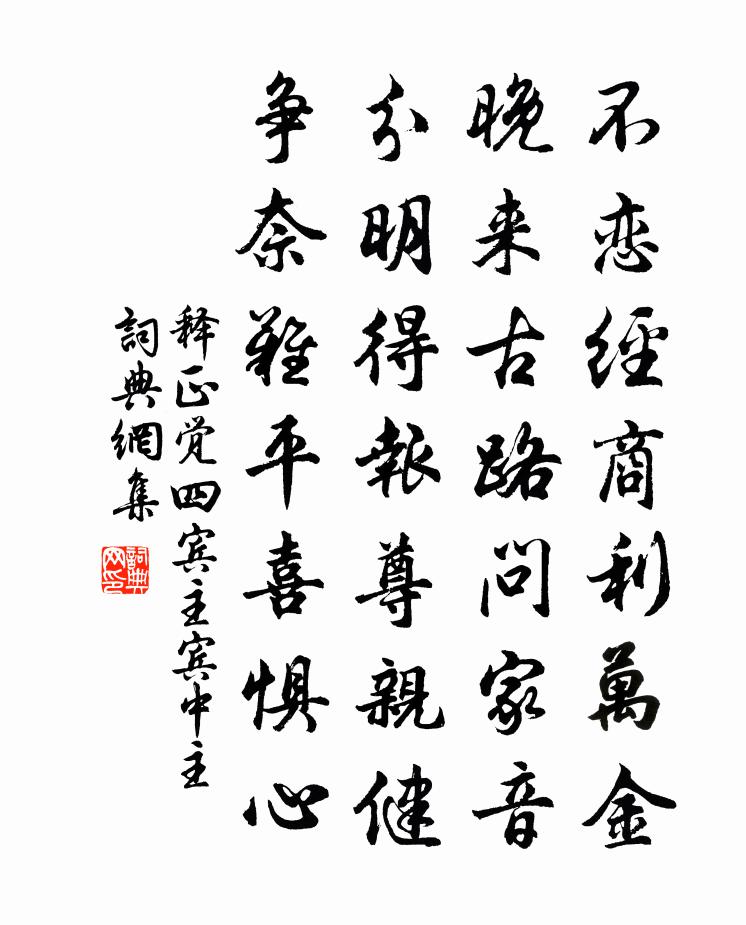 不恋經商利萬金
晚来古路問家音
分明得報尊親健
争奈難平喜惧心
释正觉四宾主宾中主
詞典網集
詞典网印